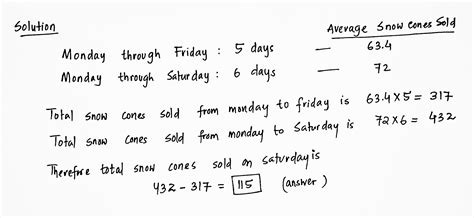 Solution
Average Snow Cones Sold
Monday through Friday : 5 days — 63.4
Monday through Saturday : 6 days — 72
Total snow cones sold from monday to friday is 63.4x5 = 317
Total snow cones sold from monday to saturday is 72x6 = 432
Therefore total snow cones sold on saturday is
432 - 317 = 115 (answer)